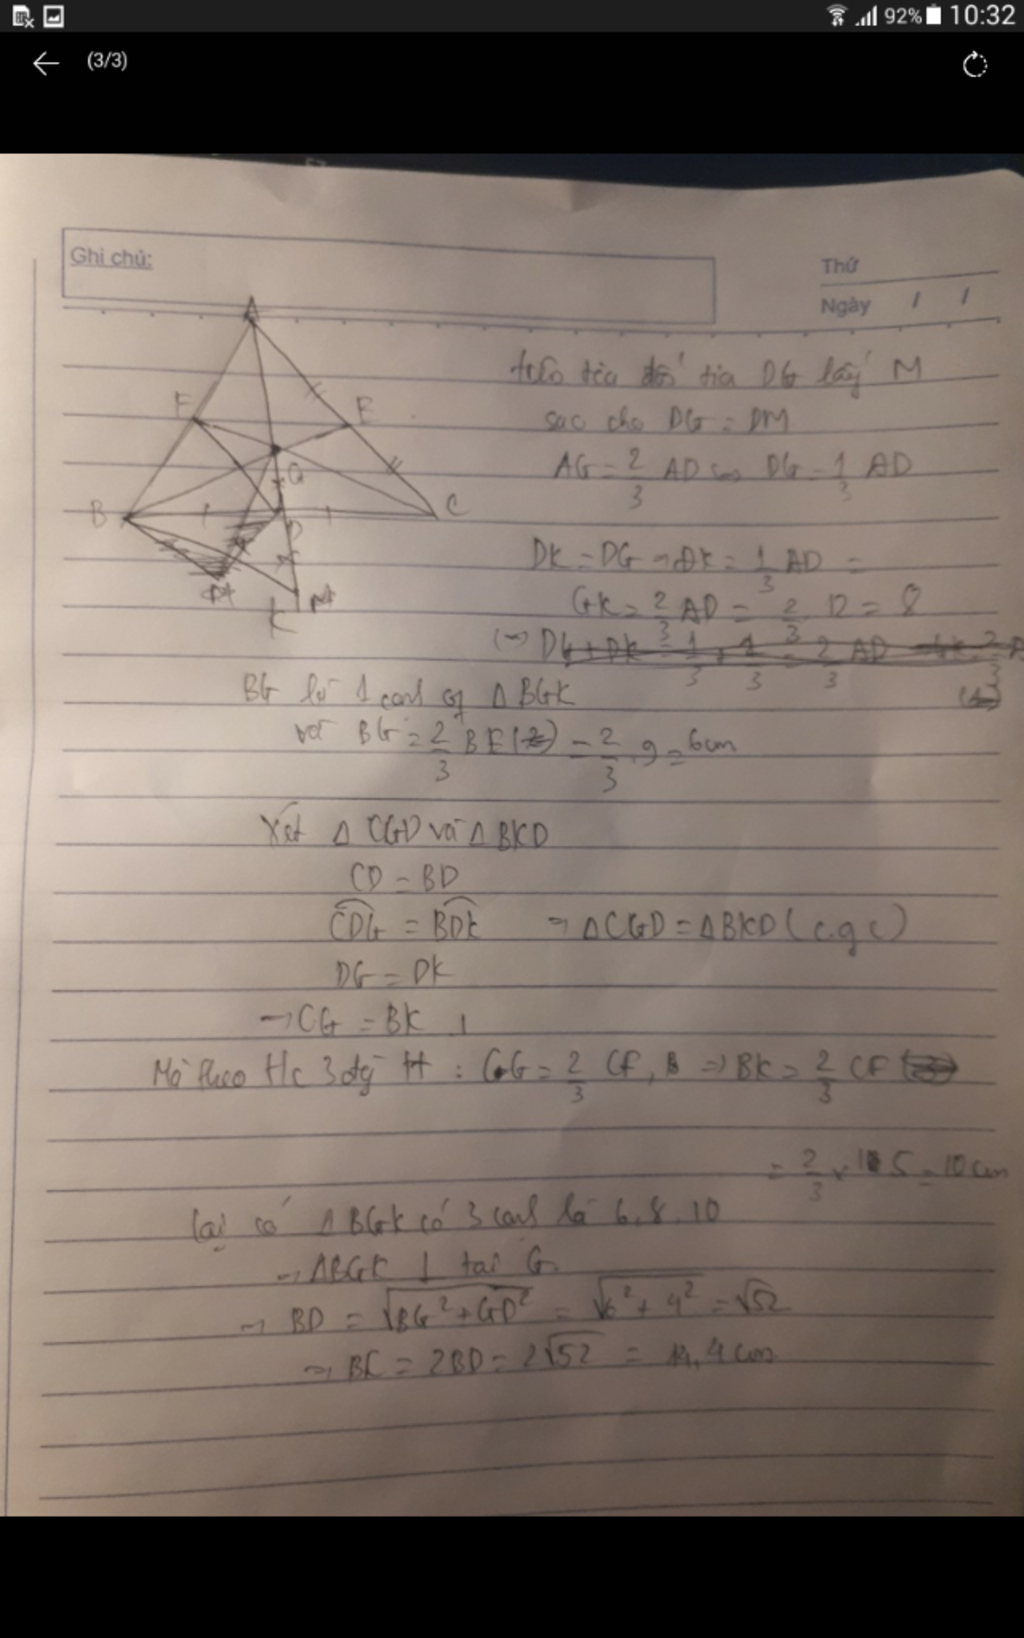 92% 10:32
(3/3)
Ghi chú:
Thứ
Ngày / /
A
F
E
G
B
D
C
K
M
trên tia đối tia DG lấy M
sao cho DG = DM
AG = 2/3 AD ⇔ DG = 1/3 AD
DK = DG → DK = 1/3 AD =
GK = 2/3 AD = 2/3 12 = 8
BG là 1 cạnh of Δ BGK
với BG = 2/3 BE = 2/3 . 9 = 6cm
Xét Δ CGD và Δ BKD
CD = BD
CDG = BDK → ΔCGD = ΔBKD (c.g.c)
DG = DK
→ CG = BK
Mà theo t/c 3 đg TT : CG = 2/3 CF, ⇒ BK = 2/3 CF
= 2/3 × 15 = 10 cm
lại có Δ BGK có 3 cạnh là 6, 8, 10
→ ΔBGK ⊥ tại G.
→ BD = √BG² + GD² = √6² + 4² = √52
→ BC = 2BD = 2√52 = 14,4 cm